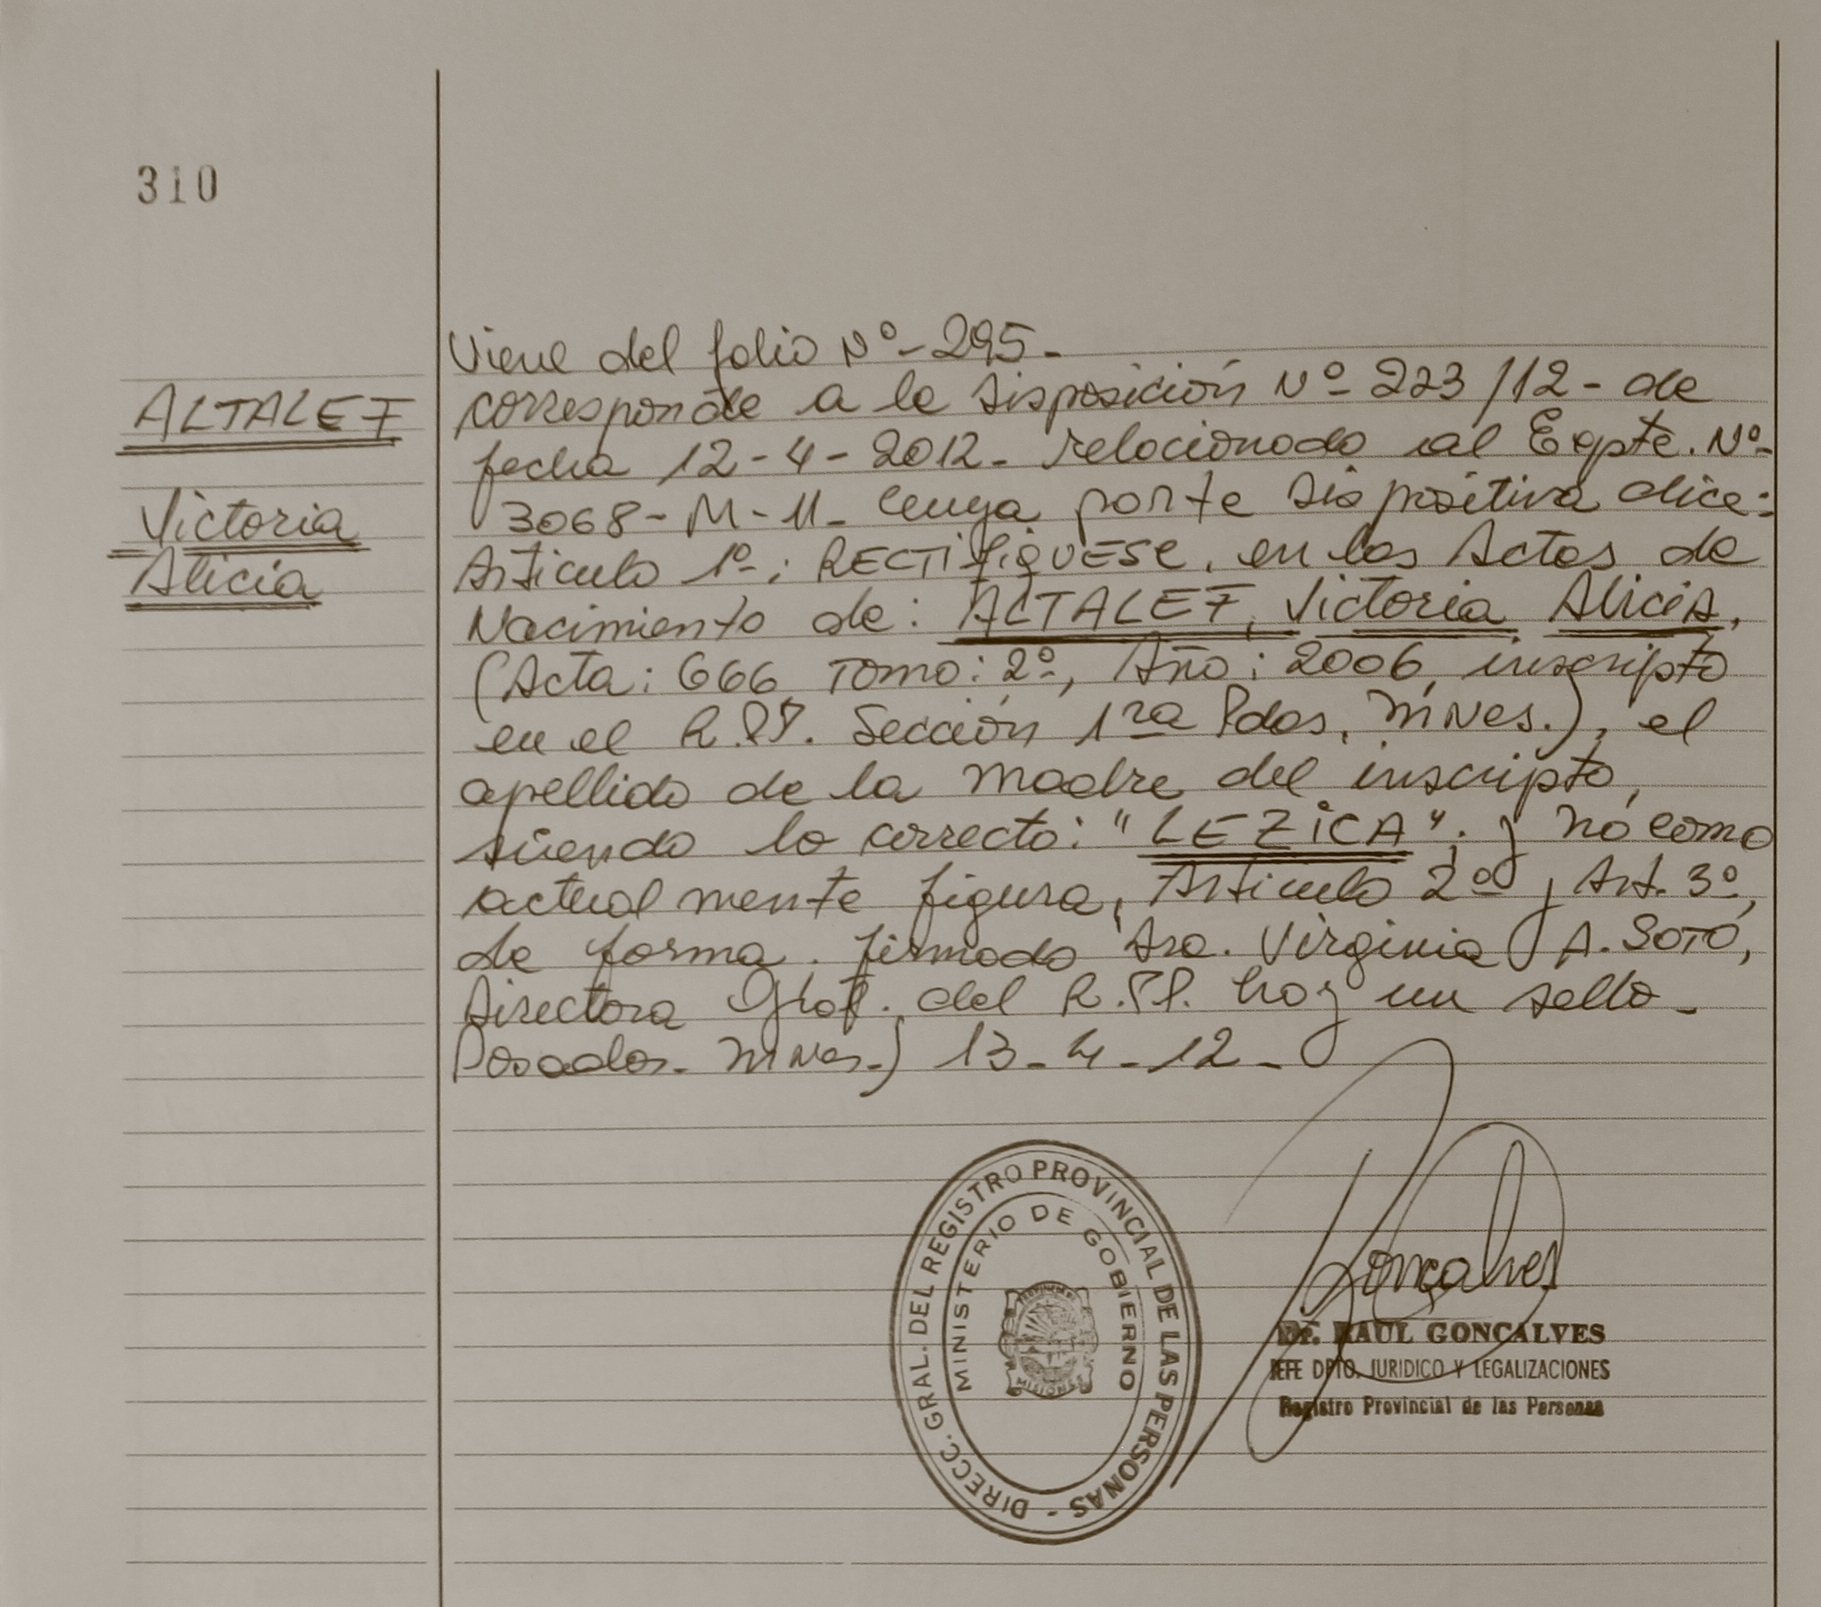 310
ALTALEF
Victoria
Alicia
Viene del folio Nº-295-
corresponde a la Disposición Nº 223/12- de
fecha 12-4-2012- relacionado al Expte. Nº-
3068-M-11- cuya parte dispositiva dice:
Articulo 1º: RECTIFIQUESE, en las Actas de
Nacimiento de: ALTALEF, Victoria Alicia,
(Acta: 666, Tomo: 2º, Año: 2006, inscripto
en el R.P.P. Sección 1ra Pdas, Mnes.), el
apellido de la madre del inscripto,
siendo lo correcto: "LEZICA". y no como
actualmente figura, Articulo 2º y Art. 3º,
de forma. firmado Dra. Virginia A. SOTO,
Directora Gral. del R.P.P. hay un sello-
Posadas- Mnes.) 13-4-12-
DIRECC. GRAL. DEL REGISTRO PROVINCIAL DE LAS PERSONAS -
MINISTERIO DE GOBIERNO
MISIONES
Goncalves
Dr. RAUL GONCALVES
JEFE DPTO. JURIDICO Y LEGALIZACIONES
Registro Provincial de las Personas